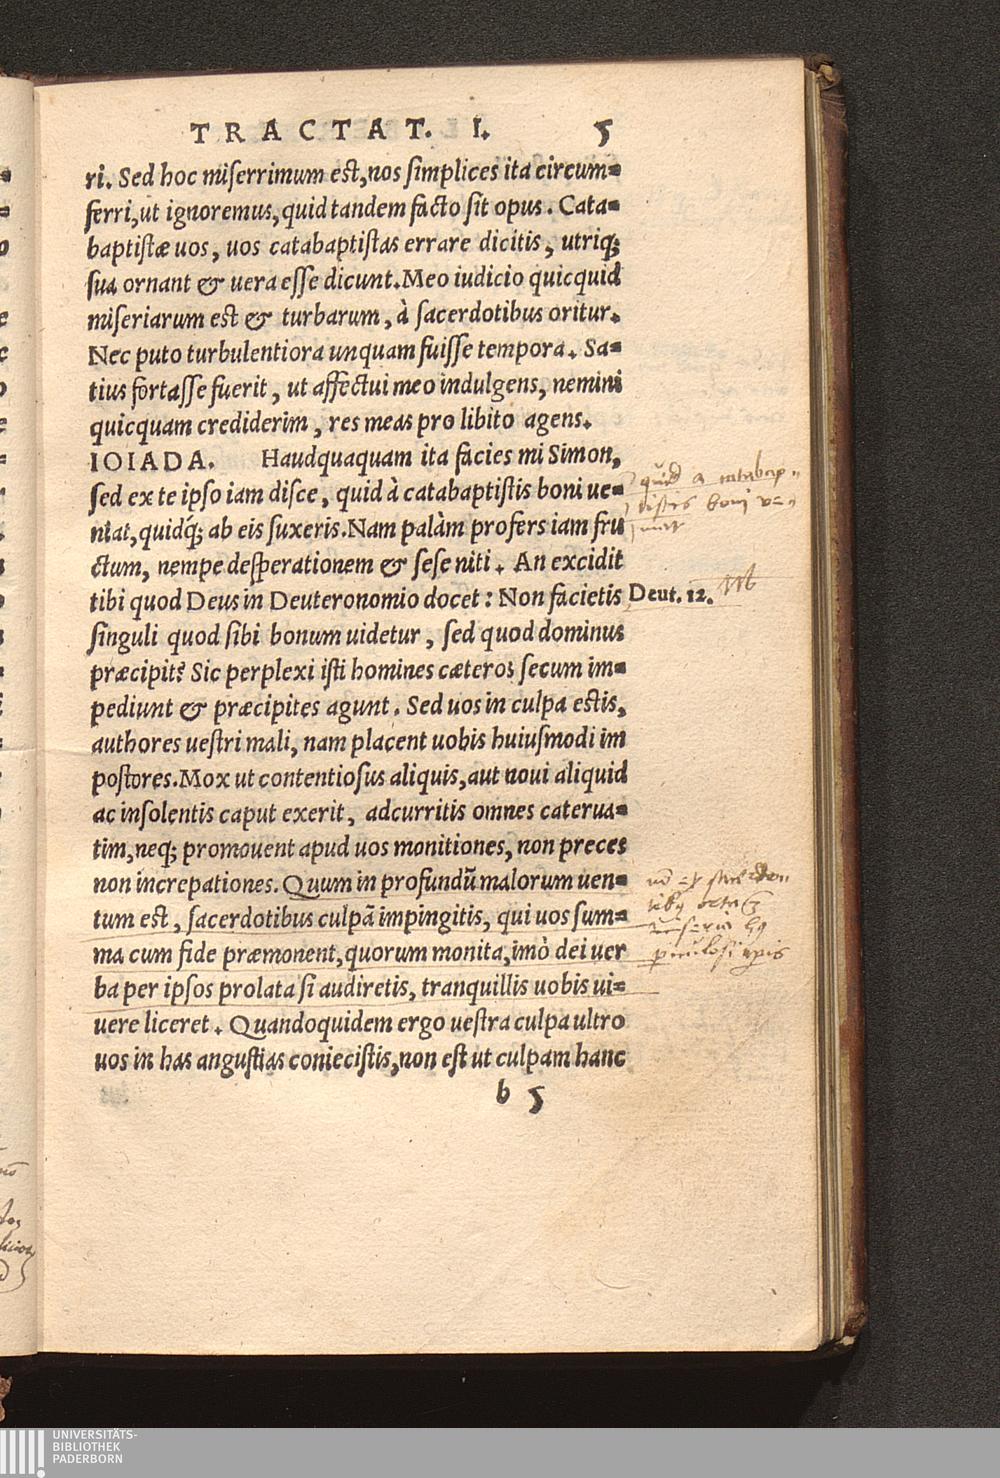 TRACTAT. I. 5
ri. Sed hoc miserrimum est, nos simplices ita circum=
ferri, ut ignoremus, quid tandem facto sit opus. Cata=
baptistæ uos, uos catabaptistas errare dicitis, utriq;
sua ornant & uera esse dicunt. Meo iudicio quicquid
miseriarum est & turbarum, à sacerdotibus oritur.
Nec puto turbulentiora unquam fuisse tempora. Sa=
tius fortasse fuerit, ut affectui meo indulgens, nemini
quicquam crediderim, res meas pro libito agens.
IOIADA. Haudquaquam ita facies mi Simon,
sed ex te ipso iam disce, quid à catabaptistis boni ue=
niat, quidq́; ab eis suxeris. Nam palàm profers iam fru
ctum, nempe desperationem & sese niti. An excidit
tibi quod Deus in Deuteronomio docet: Non facietis
singuli quod sibi bonum uidetur, sed quod dominus
præcipit? Sic perplexi isti homines cæteros secum im=
pediunt & præcipites agunt. Sed uos in culpa estis,
authores uestri mali, nam placent uobis huiusmodi im
postores. Mox ut contentiosus aliquis, aut noui aliquid
ac insolentis caput exerit, adcurritis omnes caterua=
tim, neq; promouent apud uos monitiones, non preces
non increpationes. Quum in profundũ malorum uen=
tum est, sacerdotibus culpã impingitis, qui uos sum=
ma cum fide præmonent, quorum monita, imò dei uer
ba per ipsos prolata si audiretis, tranquillis uobis ui=
uere liceret. Quandoquidem ergo uestra culpa ultro
uos in has angustias coniecistis, non est ut culpam hanc
b 5
quid a catabap=
tistis boni ve=
niat
Deut. 12.
UNIVERSITÄTS-
BIBLIOTHEK
PADERBORN